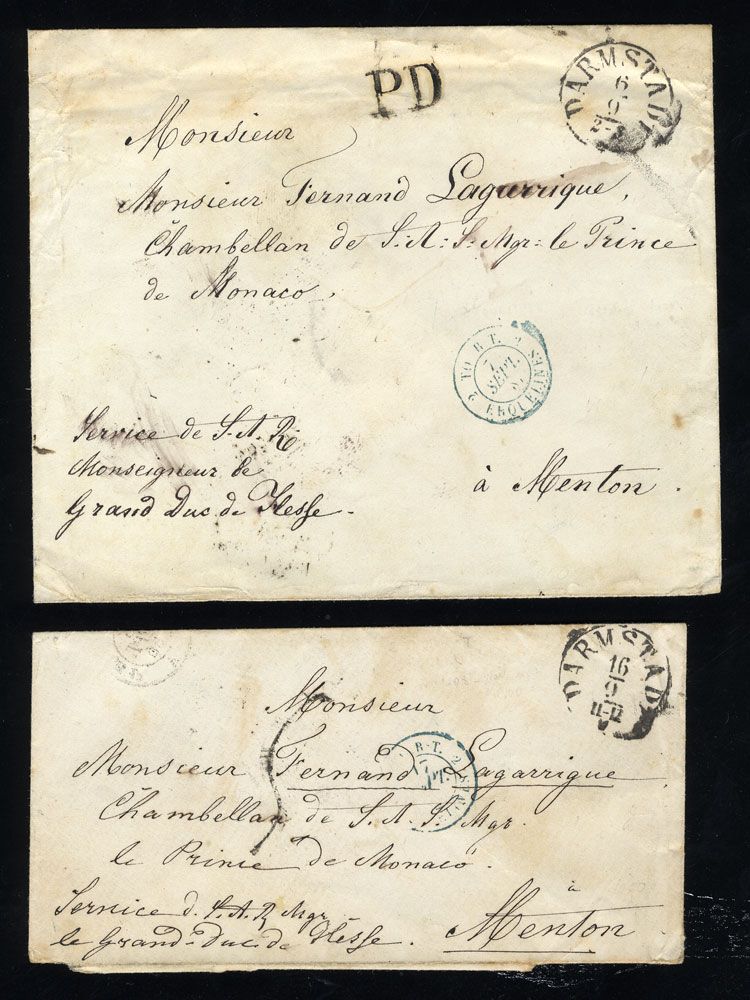 PD
DARMSTADT
6
9
2-3
Monsieur
Monsieur Fernand Lagarrique,
Chambellan de S.A: S. Mgr: le Prince
de Monaco.
TO R T. 2
7
SEPT.
2 ERQUELINES
Service de S.A.R.
Monseigneur le
Grand Duc de Hesse.
à Menton.
DARMSTADT
16
9
11-12
Monsieur
R-T. 2
17
Monsieur Fernand Lagarrigue
Chambellan de S. A. S. Mgr.
le Prince de Monaco.
à
Service d. S.A.R. Mgr
le Grand-Duc de Hesse.
Menton